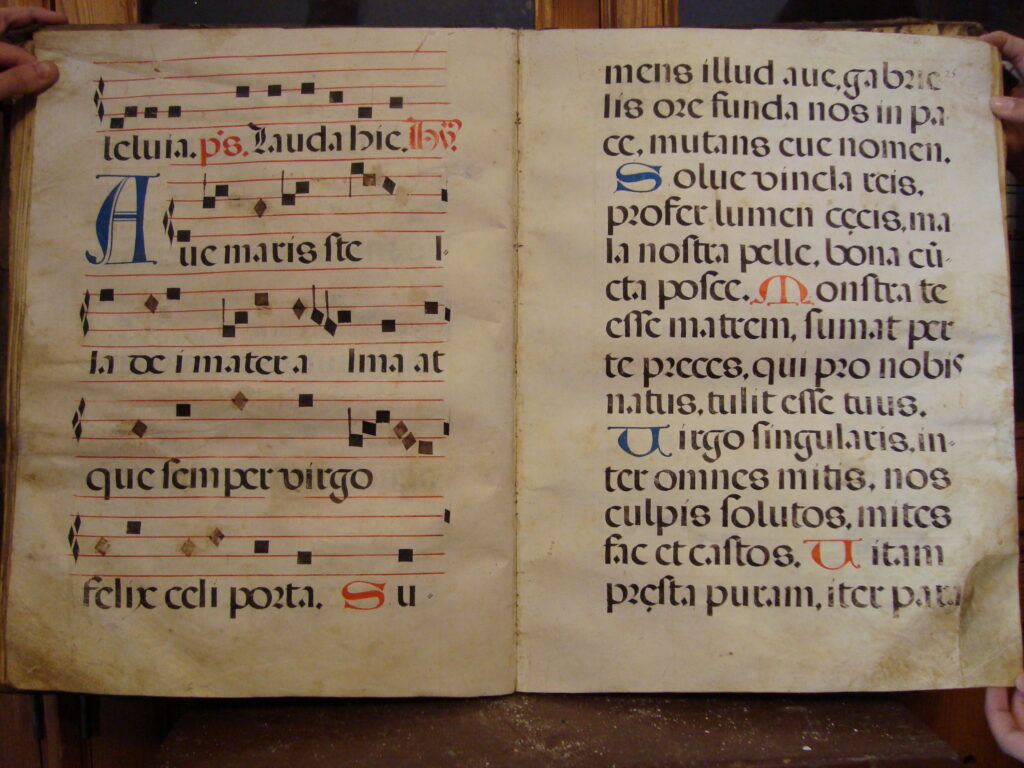 leluia. ps. Lauda hic. Hỹ.
Aue maris ste l-
la de i mater a lma at
que semper virgo
felix celi porta. Su
mens illud aue, gabrie
lis ore funda nos in pa-
ce, mutans eue nomen.
Solue vincla reis,
profer lumen cęcis, ma
la nostra pelle, bona cū-
cta posce. Monstra te
esse matrem, sumat per
te preces, qui pro nobis
natus, tulit esse tuus.
Uirgo singularis, in-
ter omnes mitis, nos
culpis solutos, mites
fac et castos. Uitam
pręsta puram, iter para